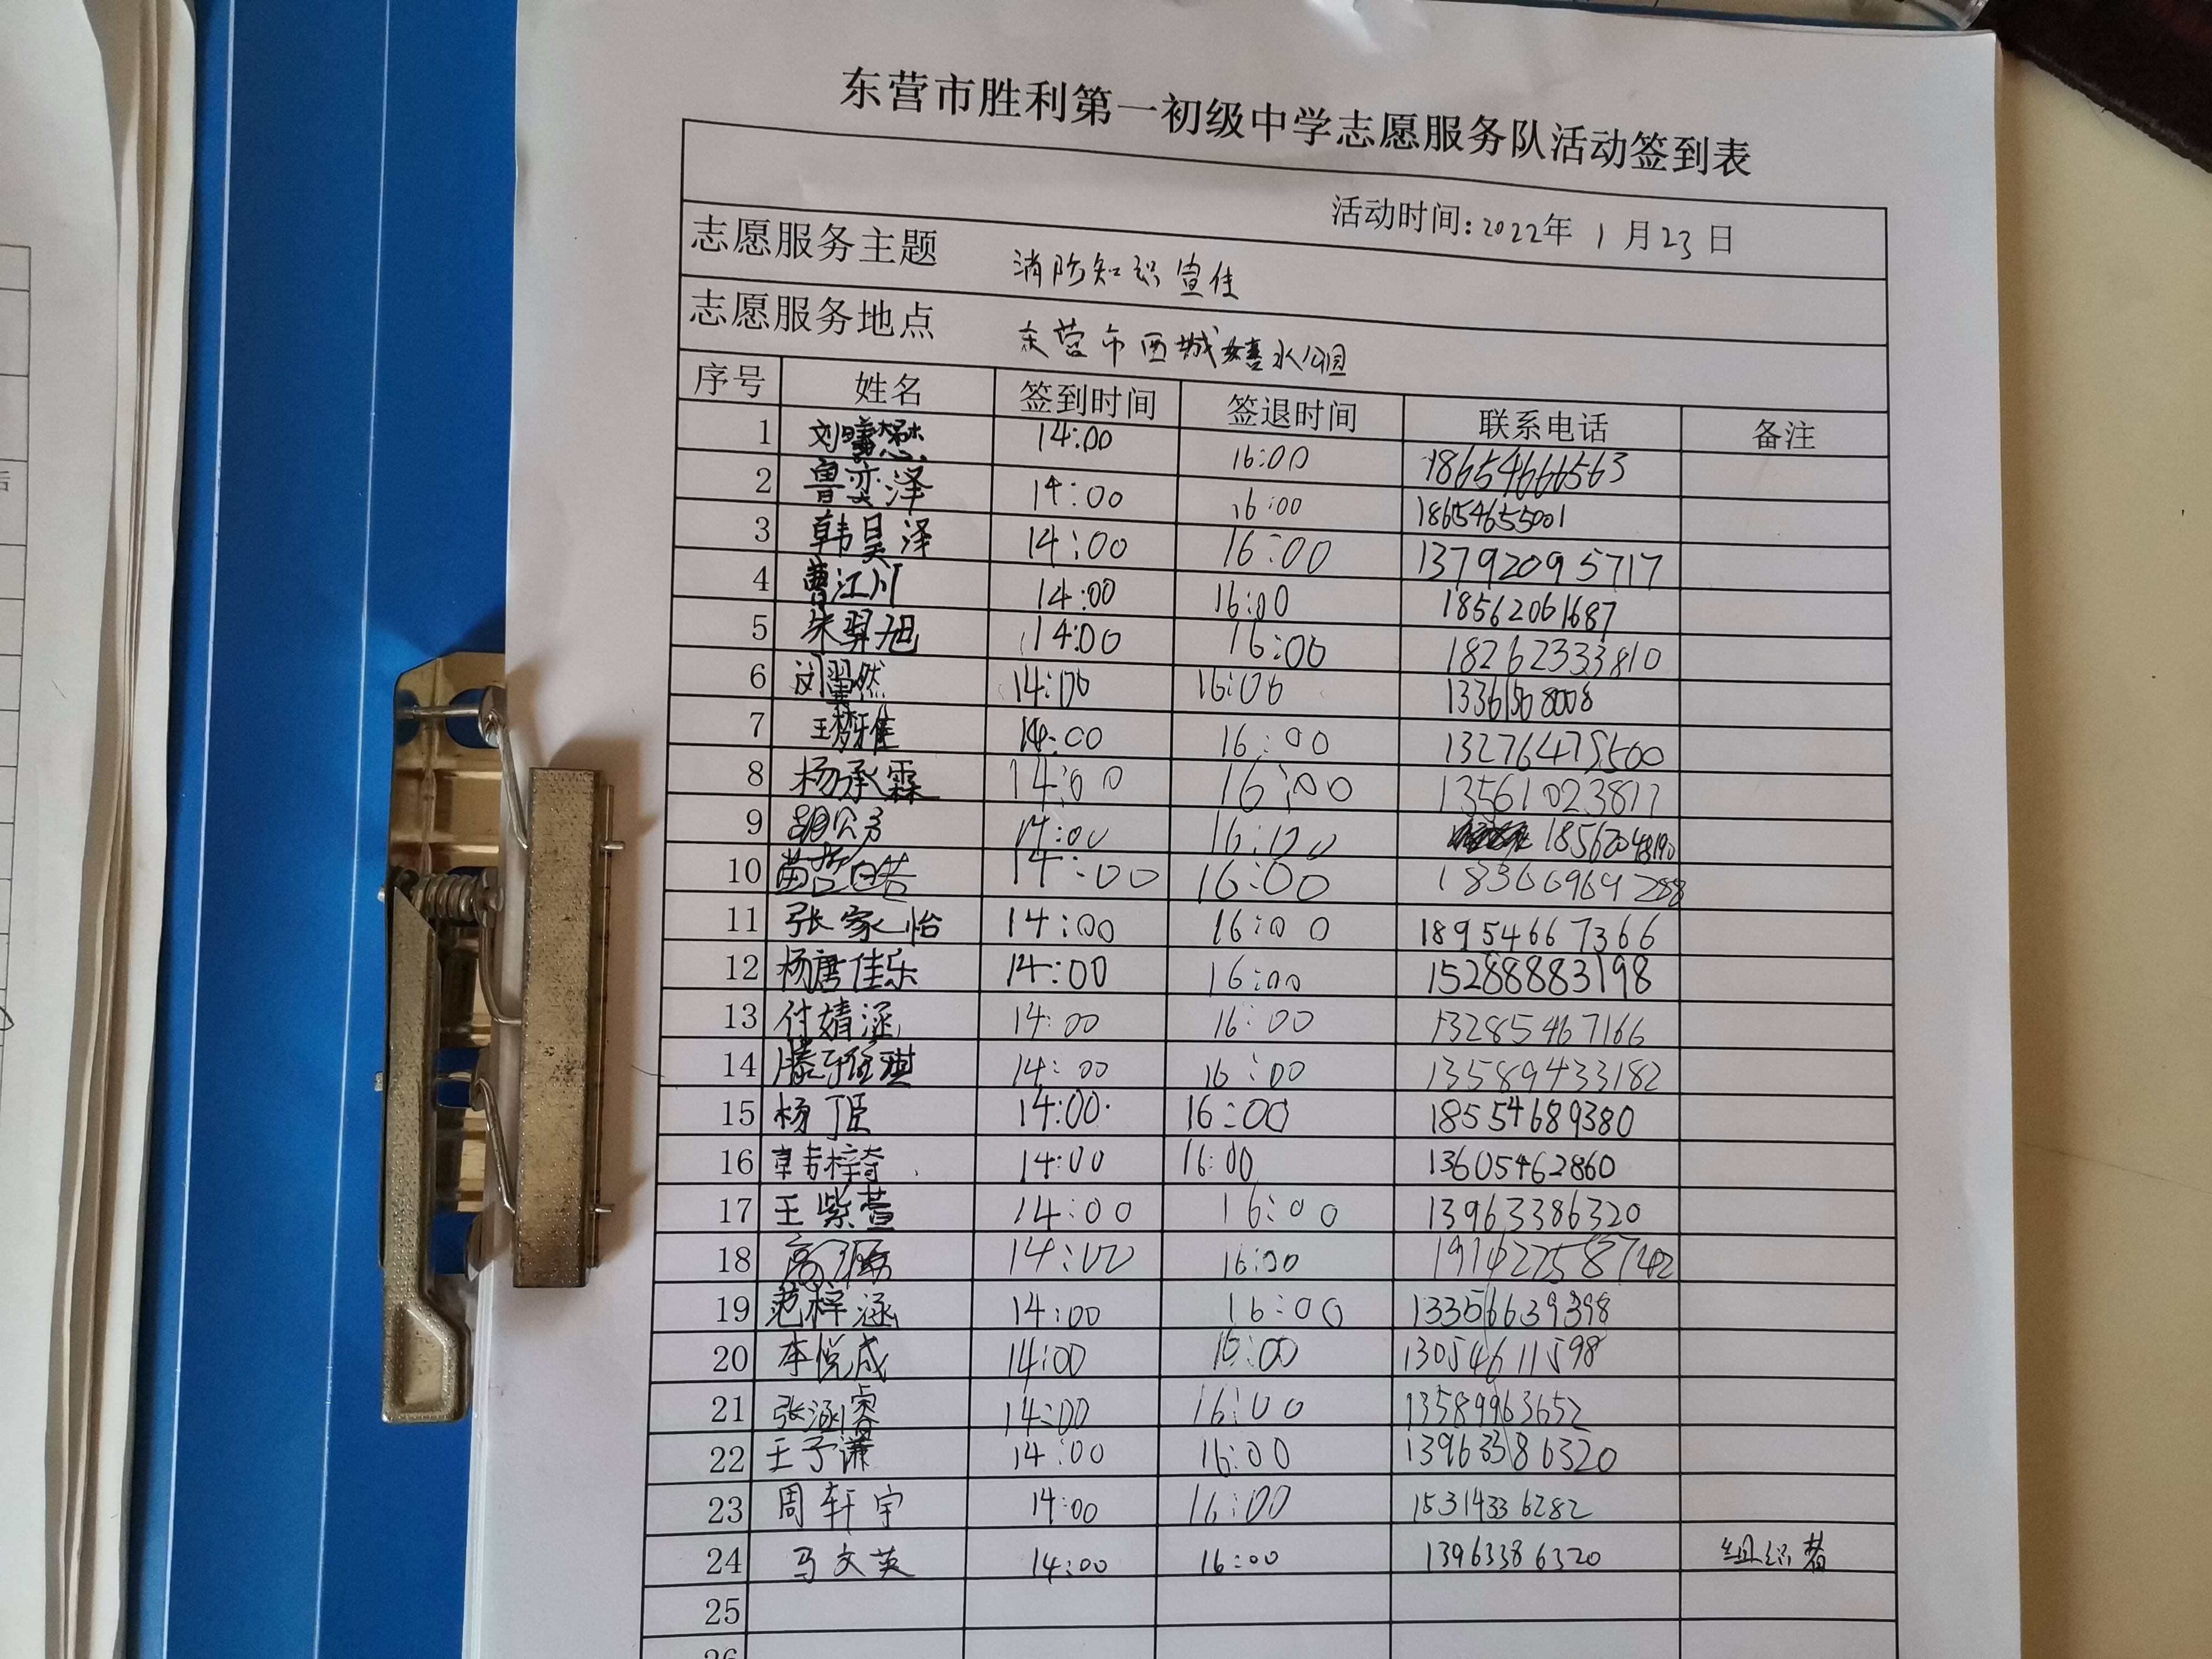 东营市胜利第一初级中学志愿服务队活动签到表
活动时间:2022年 1月23日
志愿服务主题 消防知识宣传
志愿服务地点 东营市西城嬉水公园
序号 姓名 签到时间 签退时间 联系电话 备注
1 刘曦懋 14:00 16:00 18654666563
2 鲁奕泽 14:00 16:00 18654655001
3 韩昊泽 14:00 16:00 13792095717
4 曹江川 14:00 16:00 18562061687
5 朱羿旭 14:00 16:00 18262333810
6 14:00 16:00
7 王梦雅 14:00 16:00 13276475500
8 杨承霖 14:00 16:00 13561023877
9 14:00 16:00
10 苗哲皓 14:00 16:00 18366969288
11 张家怡 14:00 16:00 18954667366
12 杨唐佳乐 14:00 16:00 15288883198
13 付婧涵 14:00 16:00 13285467166
14 滕雅琪 14:00 16:00 13589433182
15 杨 14:00 16:00 18554689380
16 韩梓奇 14:00 16:00 13605462860
17 王紫萱 14:00 16:00 13963386320
18 14:00 16:00
19 范梓涵 14:00 16:00 13356639398
20 李悦成 14:00 16:00 13054611598
21 张涵睿 14:00 16:00 13589963652
22 王予谦 14:00 16:00 13963386320
23 周轩宇 14:00 16:00 15314336282
24 马文英 14:00 16:00 13963386320 组织者
25
26